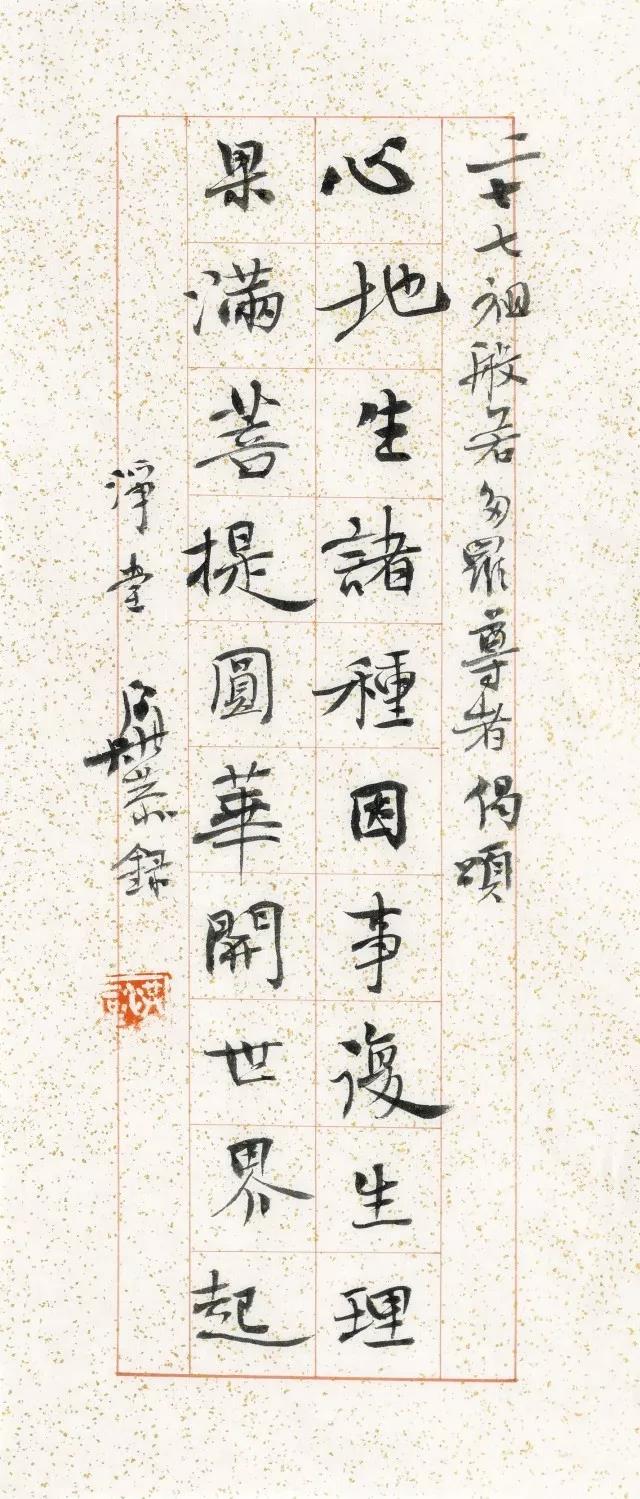 二十七祖般若多羅尊者偈頌
心地生諸種因事復生理
果滿菩提圓華開世界起
淨堂 錄